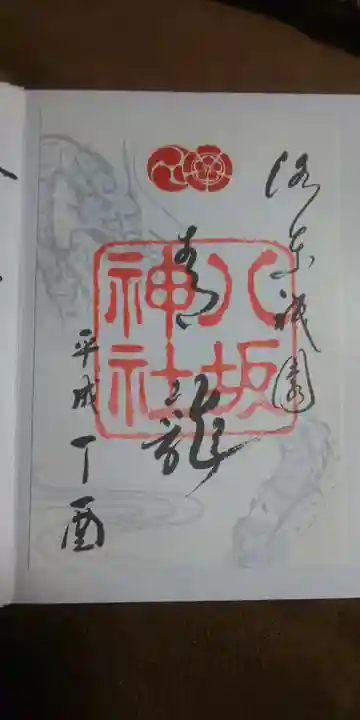 洛東祇園
八坂
神社
青龍
平成丁酉